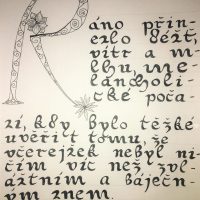 Ráno přin-
eslo déšť,
vítr a m-
lhu, me-
lancholi-
cké poča-
sí, kdy bylo těžké
uvěřit tomu, že
včerejšek nebyl ni-
čím víc než zvl-
áštním a báječn-
ým snem.